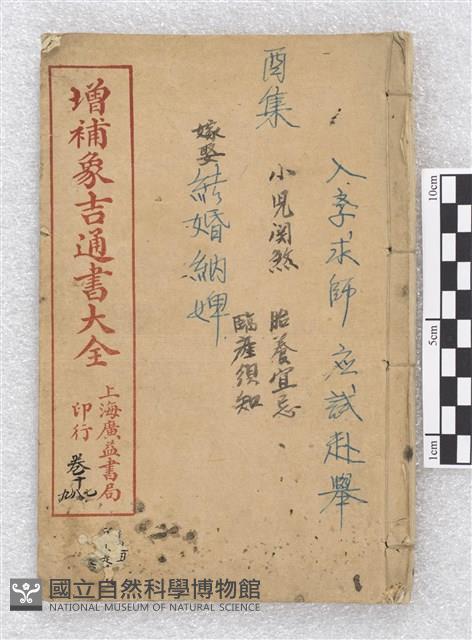 酉集
入李求師 应試赴舉
小児関煞 胎養宜忌
臨産須知
嫁娶
結婚納婢
增補象吉通書大全
上海廣益書局
印行
卷十
七八九
10cm
5cm
1cm
國立自然科學博物館
NATIONAL MUSEUM OF NATURAL SCIENCE